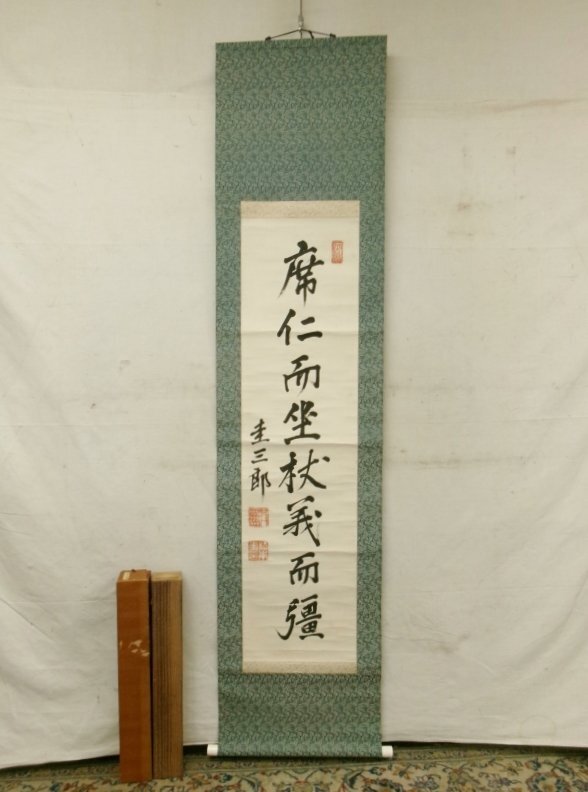 席仁而坐杖義而彊
圭三郎